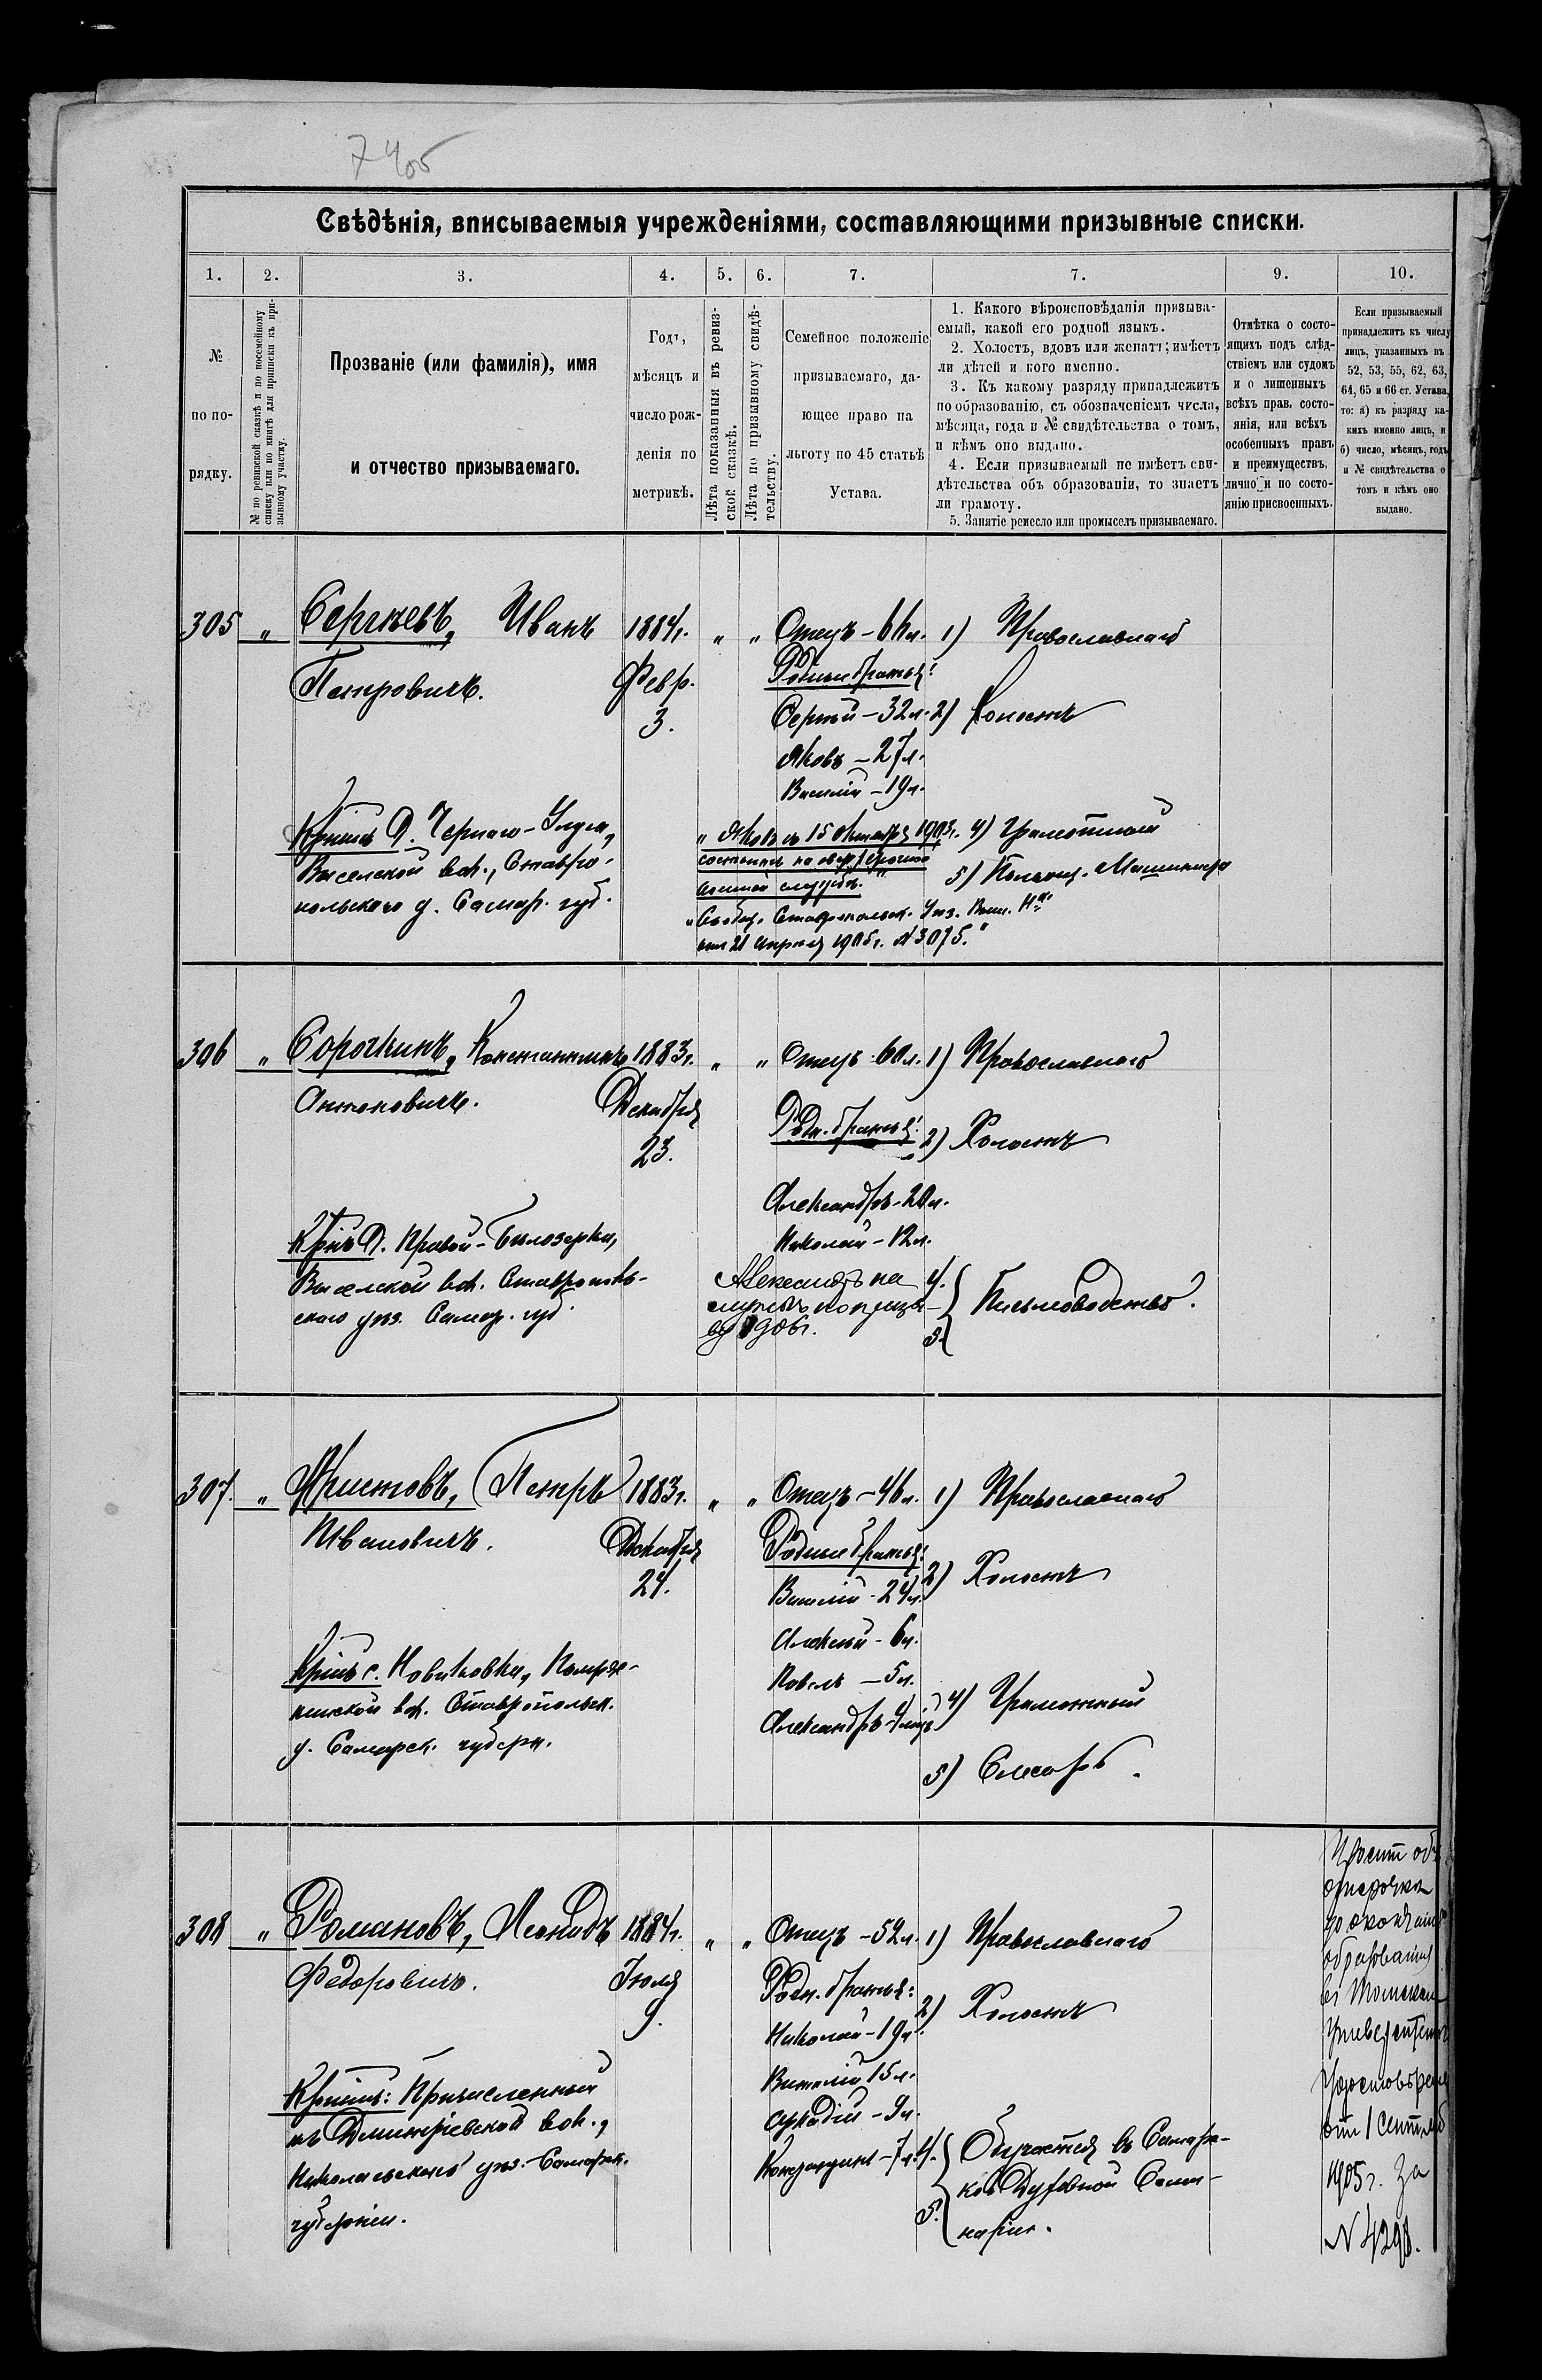 7405
Свѣдѣнія, вписываемыя учрежденіями, составляющими призывные списки.
1. 2. 3. 4. 5. 6. 7. 7. 9. 10.
№
по по-
рядку.
№ по ревизской сказкѣ и по посемейному
списку или по книгѣ для приписки къ при-
зывному участку.
Прозваніе (или фамилія), имя
и отчество призываемаго.
Годъ,
мѣсяцъ и
число рож-
денія по
метрикѣ.
Лѣта показанныя въ ревиз-
ской сказкѣ.
Лѣта по призывному свидѣ-
тельству.
Семейное положеніе
призываемаго, да-
ющее право на
льготу по 45 статьѣ
Устава.
1. Какого вѣроисповѣданія призыва-
емый, какой его родной языкъ.
2. Холостъ, вдовъ или женатъ; имѣетъ
ли дѣтей и кого именно.
3. Къ какому разряду принадлежитъ
по образованію, съ обозначеніемъ числа,
мѣсяца, года и № свидѣтельства о томъ,
и кѣмъ оно выдано.
4. Если призываемый не имѣетъ сви-
дѣтельства объ образованіи, то знаетъ
ли грамоту.
5. Занятіе ремесло или промыселъ призываемаго.
Отмѣтка о состо-
ящихъ подъ слѣд-
ствіемъ или судомъ
и о лишенныхъ
всѣхъ прав, состо-
янія, или всѣхъ
особенныхъ правъ
и преимуществъ,
лично и по состо-
янію присвоенныхъ.
Если призываемый
принадлежитъ къ числу
лицъ, указанныхъ въ
52, 53, 55, 62, 63,
64, 65 и 66 ст. Устава,
то: а) къ разряду ка-
кихъ именно лицъ, и
б) число, мѣсяцъ, годъ
и № свидѣтельства о
томъ и кѣмъ оно
выдано.
305 " Сергѣевъ, Иванъ
Петровичъ.
Кр-нинъ д. Чернаго-
Выселской вол., Ставро-
польскаго у. Самар. губ.
1884г.
Февр.
3.
" "
Отецъ - 66 л.
Родные братья:
Сергѣй - 32 л.
Яковъ - 27 л.
Василій - 19 л.
" Яковъ съ 15 Октября 1903г.
состоитъ на сверхсрочной
военной службѣ."
"Сообщ. Ставропольск. Уѣз. Воин. Н-ка
отъ 21 Апрѣля 1905г. № 3075."
1) Православнаго
2) Холостъ
4) Грамотный
5) Машиниста
306 " Сорокинъ, Константинъ
Антоновичъ.
Кр-нинъ д. Кривой-Бѣлозерки,
Выселской вол. Ставрополь-
скаго уѣз. Самар. губ.
1883г.
Декабря
23.
" "
Отецъ - 60 л.
Родн. братья:
Александръ - 20 л.
Николай - 12 л.
Александръ на
службѣ по призы-
ву 1906г.
1) Православнаго
2) Холостъ
4.
5. Письмоводство.
307. " Христовъ, Петръ
Ивановичъ.
Кр-нинъ с. Новиковки,
вол. Ставропольск.
у. Самарск. губерн.
1883г.
Декабря
24.
" "
Отецъ - 46 л.
Родные братья:
Василій - 24 л.
Алексѣй - 6 л.
Павелъ - 5 л.
Александръ
1) Православнаго
2) Холостъ
4) Грамотный
5) Слесарь.
308 " Романовъ, Леонидъ
Федоровичъ.
Кр-нинъ: Причисленный
къ Дмитріевской вол.,
Николаевскаго уѣз. Самарск.
губерніи.
1884г.
Іюля
9.
" "
Отецъ - 52 л.
Родн. братья:
Николай - 19 л.
Виталій 15 л.
Аркадій - 9 л.
- 7 л.
1) Православнаго
2) Холостъ
4.
5. Обучается въ Самарс-
кой Духовной Семи-
наріи.
Просит об
отсрочкѣ
до окончанія
образованія
въ Томском
Университетѣ
отъ 1 Сентября
1905г. за
№ 4298.